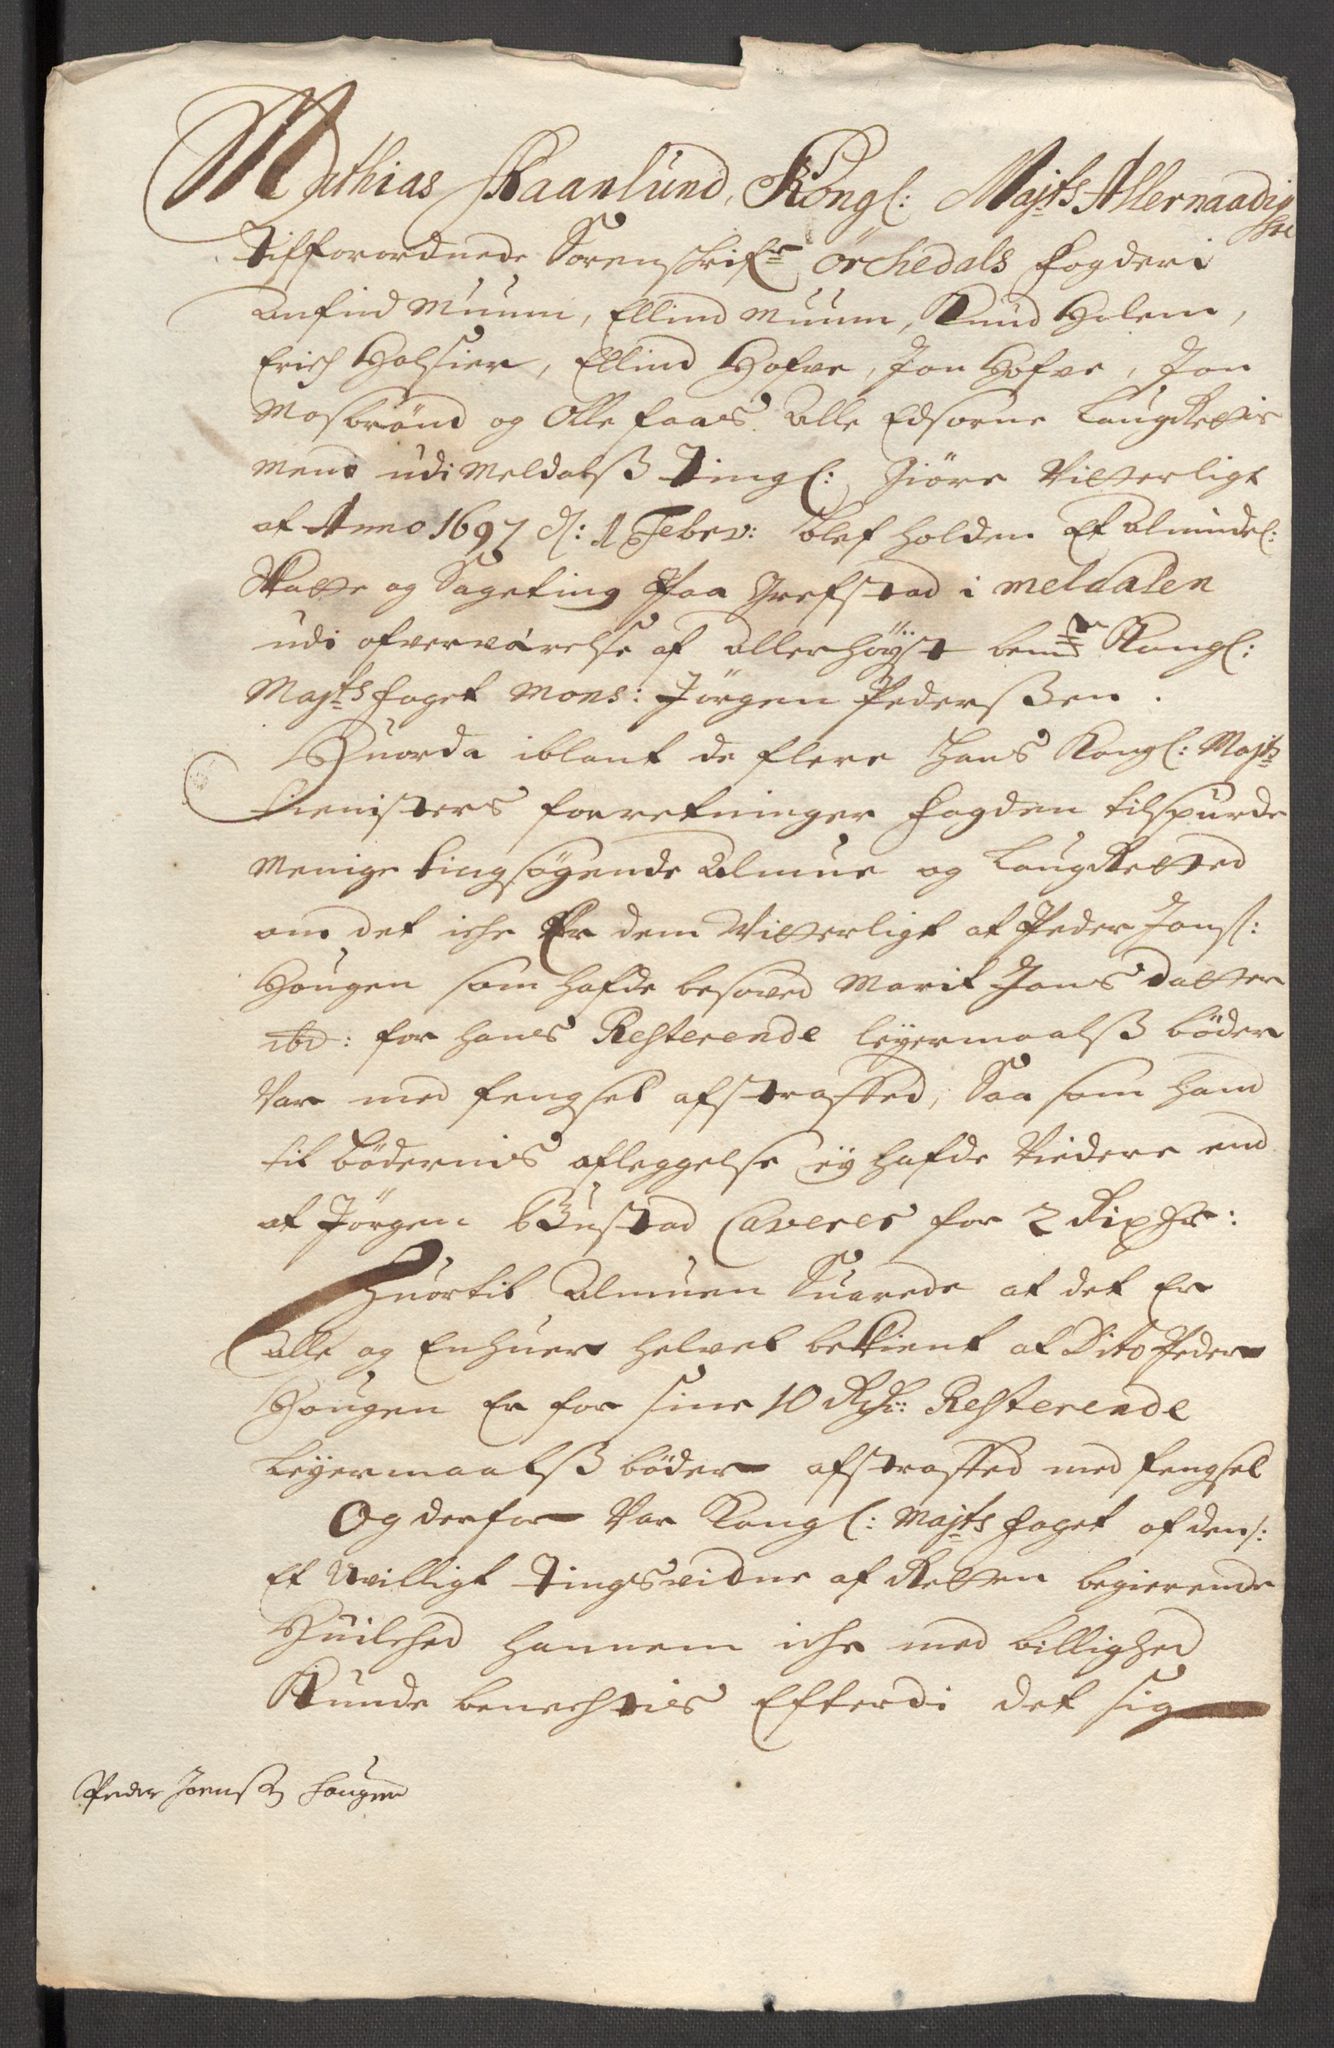 Mathias Skaanlund, Kongl: Majts Allernaadigste
Tilforordnede Sorenskrifr Orchedals fogderi
Anfind Muum, Ellind Muum, Knud Holem,
Erich Holsier, Ellind Hofve, Jon Hofve, Jon
Mosbrønd og Olle faaes Alle Edsorne LaugRettis
mend udi Meldalß Tingl: Giøre Vitterligt
at Anno 1697 d: 1 Febrv: blef holden Et Almindel:
Skatte og Sageting Paa Grefstad i meldalen
udi ofverværelse af allerhøyst bemte Kongl:
Majts foget Mons: Jørgen Pederßen.
Huorda iblant de flere Hans Kongl: Majts
tienisters forretninger fogden tilspurde
Menige tingsøgende Almue og LaugRetted
om det iche Er dem Vitterligt at Peder Jons:
Hougen som hafde besoved Marit Jons datter
ibd: for hans Resterende leyermaalß bøder
Var med fengsel afstraffed, Saa som hand
til bødernis afleggelse ey hafde Viedere end
at Jørgen Bustad Caveres for 2 Rixdr:
Huortil Almuen Suarede at det Er
Alle og Enhuer helvel bekient at Dito Peder
Hougen Er for sine 10 Rdr: Resterende
Leyermaalß bøder afstraffed med fengsel
Og derfor Var Kongl: Majts foget af dens:
Et Uvilligt Tingsvidne af Retten begierende
Huilched hannem iche med billighed
Kunde benechtis Efterdi det sig
Peder Joensß Hougen